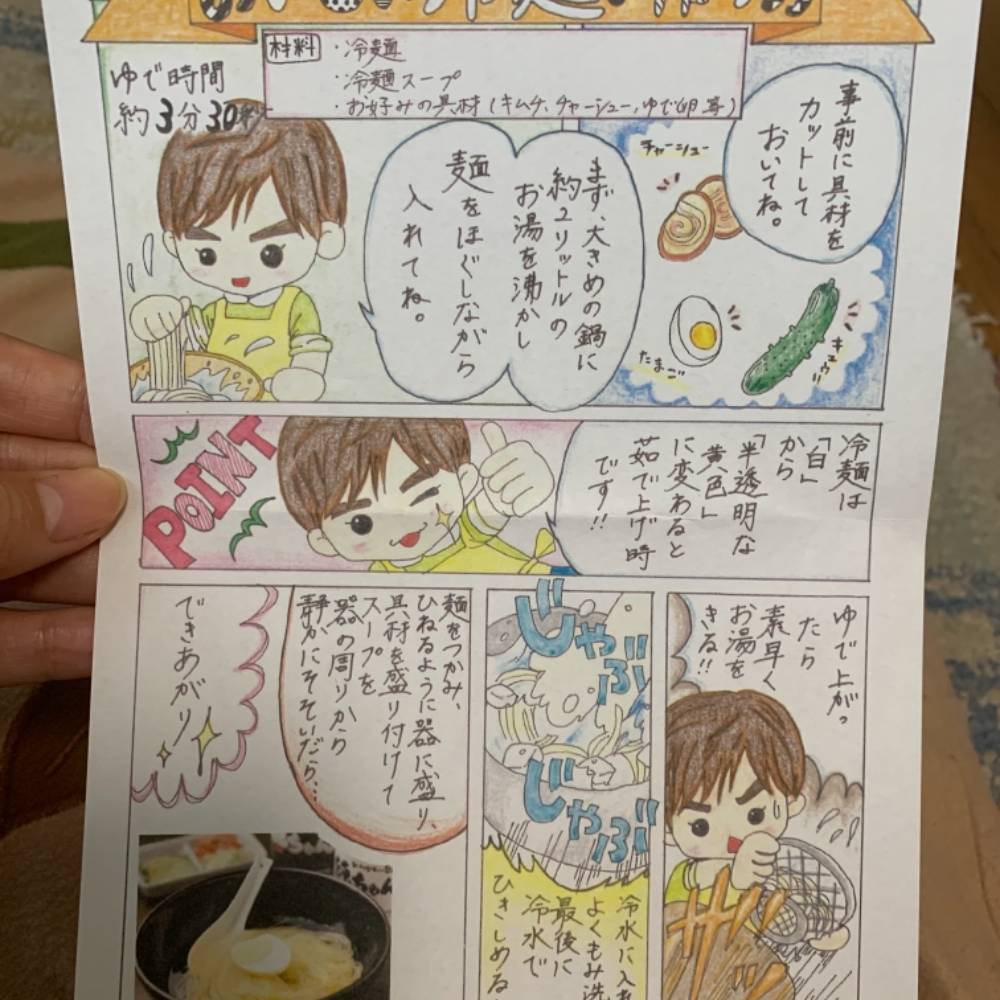 材料
・冷麺
・冷麺スープ
・お好みの具材(キムチ、チャーシュー、ゆで卵等)
ゆで時間
約3分30秒
事前に具材を
カットして
おいてね。
チャーシュー
たまご
キュウリ
まず、大きめの鍋に
約2リットルの
お湯を沸かし
麺をほぐしながら
入れてね。
POINT
冷麺は
「白」
から
「半透明な
黄色」
に変わると
茹で上げ時
です!!
ゆで上がっ
たら
素早く
お湯を
きる!!
ザッ
じゃぶ
じゃぶ
冷水に入れ
よくもみ洗
最後に
冷水で
ひきしめる
麺をつかみ、
ひねるように器に盛り、
具材を盛り付けて
スープを
器の周りから
静かにそそいだら…
できあがり